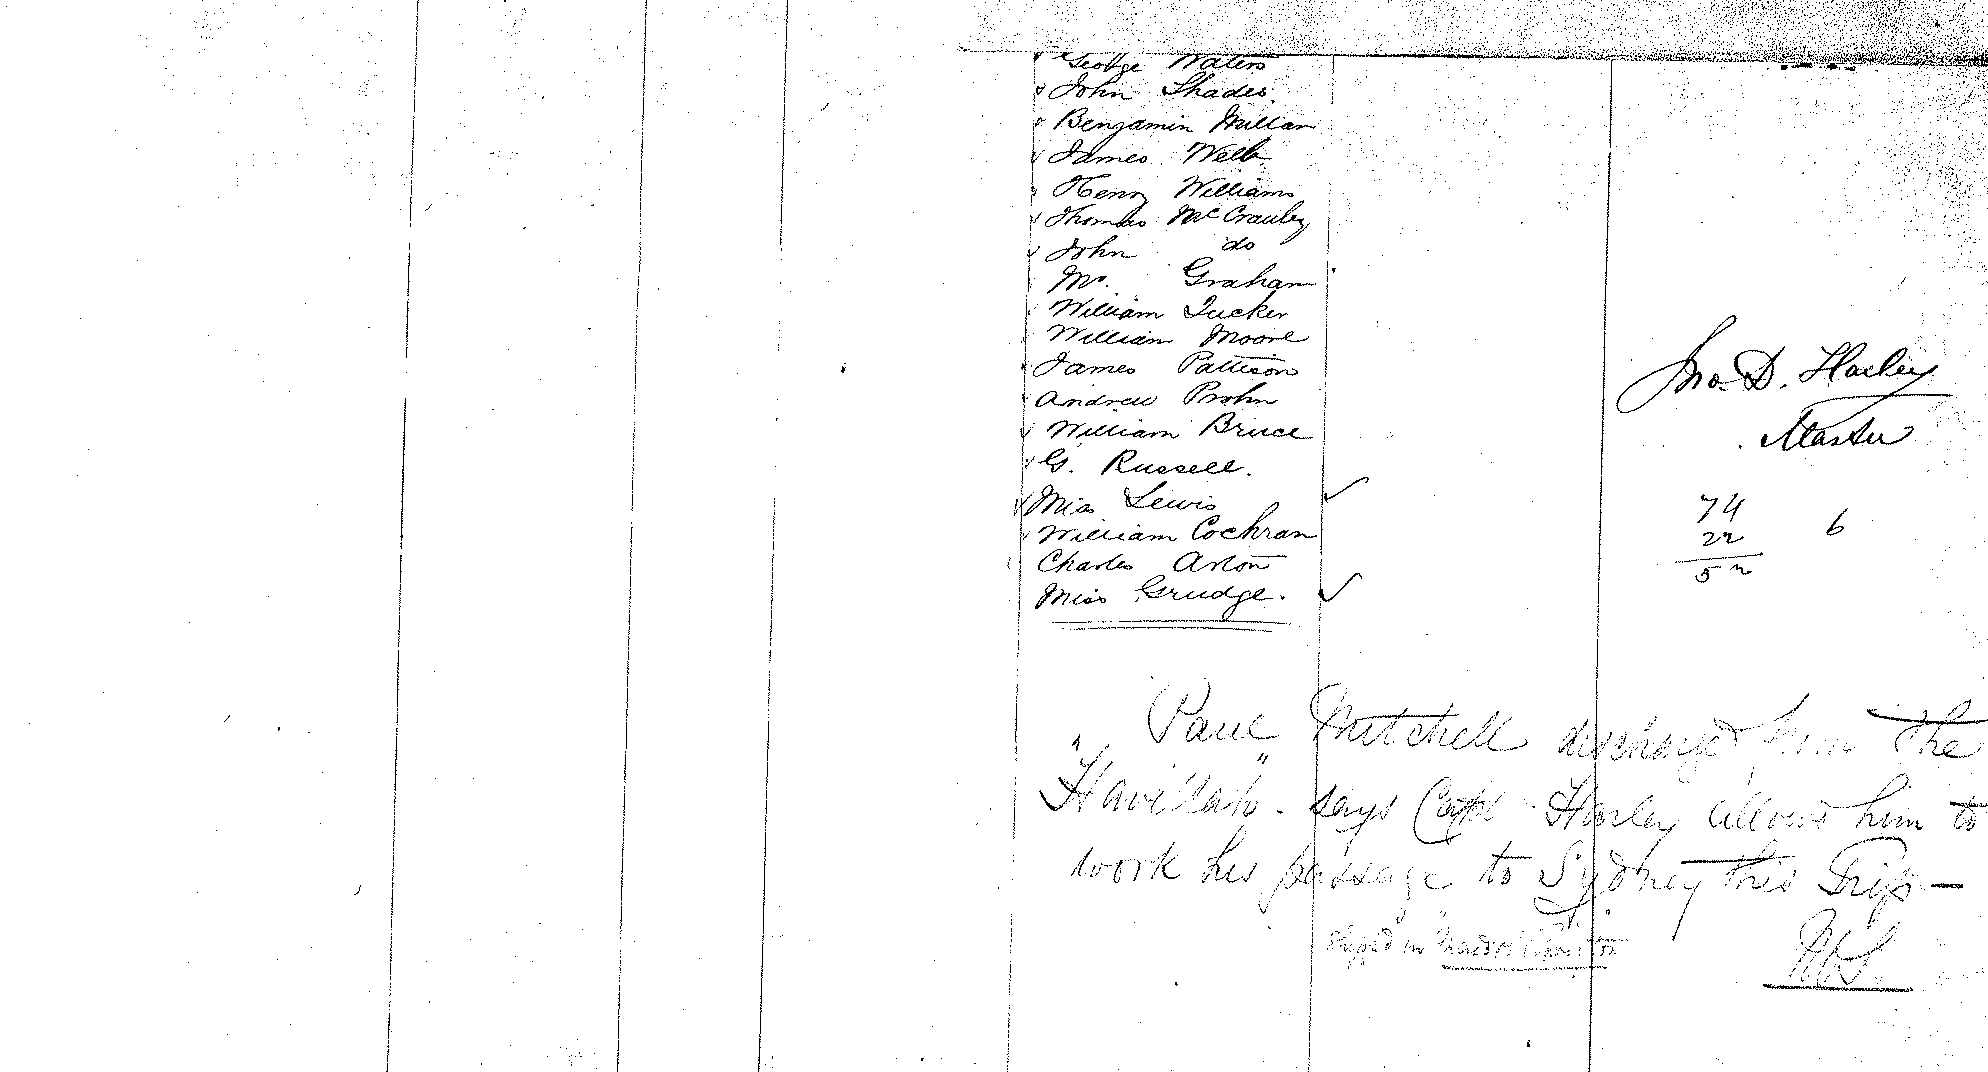 George Waters
John Shades
Benjamin Millan
James Webb
Henry Williams
Thomas McCrauley
John do
Mr. Graham
William Tucker
William Moore
James Pattison
Andrew Prohn
William Bruce
G. Russell.
Miss Lewis
William Cochran
Charles
Miss Grudge.
Jno. D. Harley
Master
74
22 6
52
Paul Mitchell discharged from the
"Havilah" - says Captn Harley allows him to
work his passage to Sydney this Trip -
Shipped in